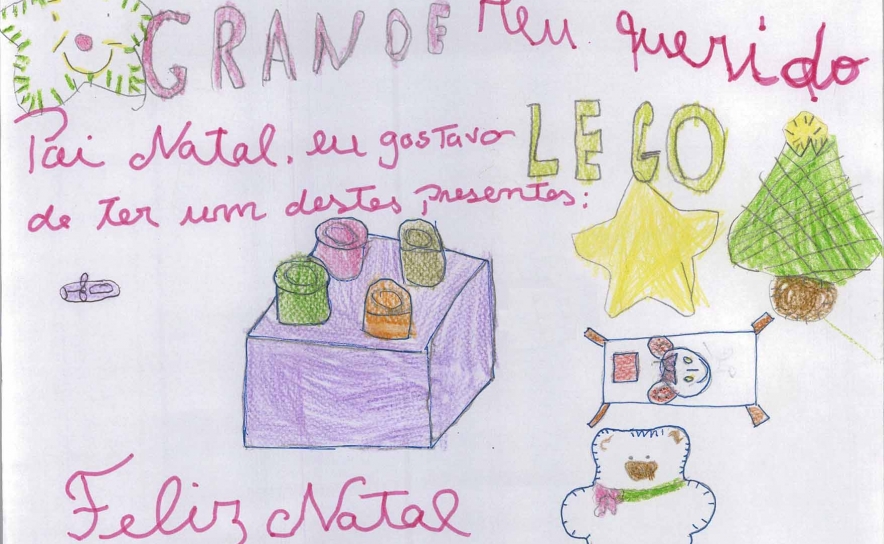 GRANDE Meu querido
Pai Natal, eu gostava LEGO
de ter um destes presentes:
Feliz Natal